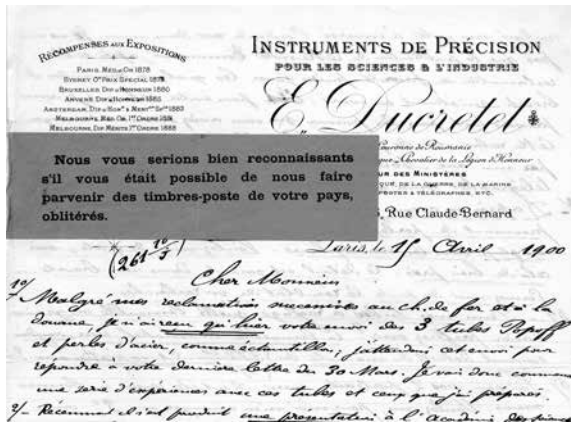 RÉCOMPENSES AUX EXPOSITIONS
PARIS. MED. OR 1878
SYDNEY Oᵗᵉ PRIX SPECIAL 1879
BRUXELLES DIP. D'HONNEUR 1880
ANVERS DIP. D'HONNEUR 1885
AMSTERDAM, DIP. D'HONᴿ & MERITᵉ SCᵉ 1883
MELBOURNE. MED. OR. 1ᵉʳ ORDRE
MELBOURNE. DIP. MÉRITE 1ᵉʳ ORDRE 1888
INSTRUMENTS DE PRÉCISION
POUR LES SCIENCES & L'INDUSTRIE
E. Ducretet
Couronne de Roumanie
Chevalier de la Légion d'Honneur
UR DES MINISTÈRES
QUE, DE LA GUERRE, DE LA MARINE
POSTES & TÉLÉGRAPHES, ETC.
Rue Claude Bernard
Nous vous serions bien reconnaissants
s'il vous était possible de nous faire
parvenir des timbres-poste de votre pays,
oblitérés.
Paris, le 15 Avril 1900
Cher Monsieur
1º/ Malgré mes réclamations successives au ch. de fer et à la
douane, je n'ai reçu qu'hier votre envoi des 3 tubes Popoff
et perles d'acier, comme échantillons, j'attendais cet envoi pour
répondre à votre dernière lettre du 30 Mars. Je vais donc commen
une série d'expériences avec ces tubes et ceux que j'ai préparés.
2/- Récemment il s'est produit une présentation à l'Académie des scienc